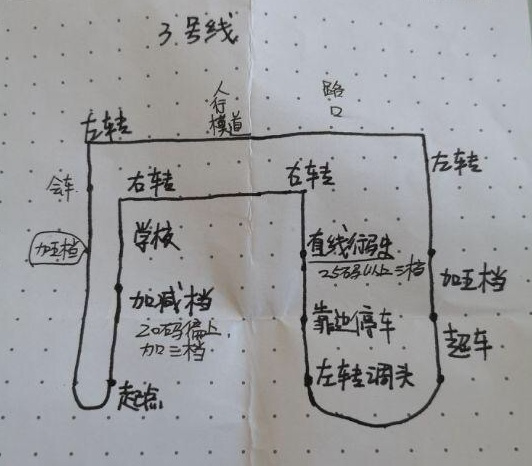 3号线
人行横道
路口
左转
左转
会车
右转
右转
加五档
学校
直线行驶
25码以上三档
加五档
加减档
20码偏上
加三档
靠边停车
超车
起点
左转调头